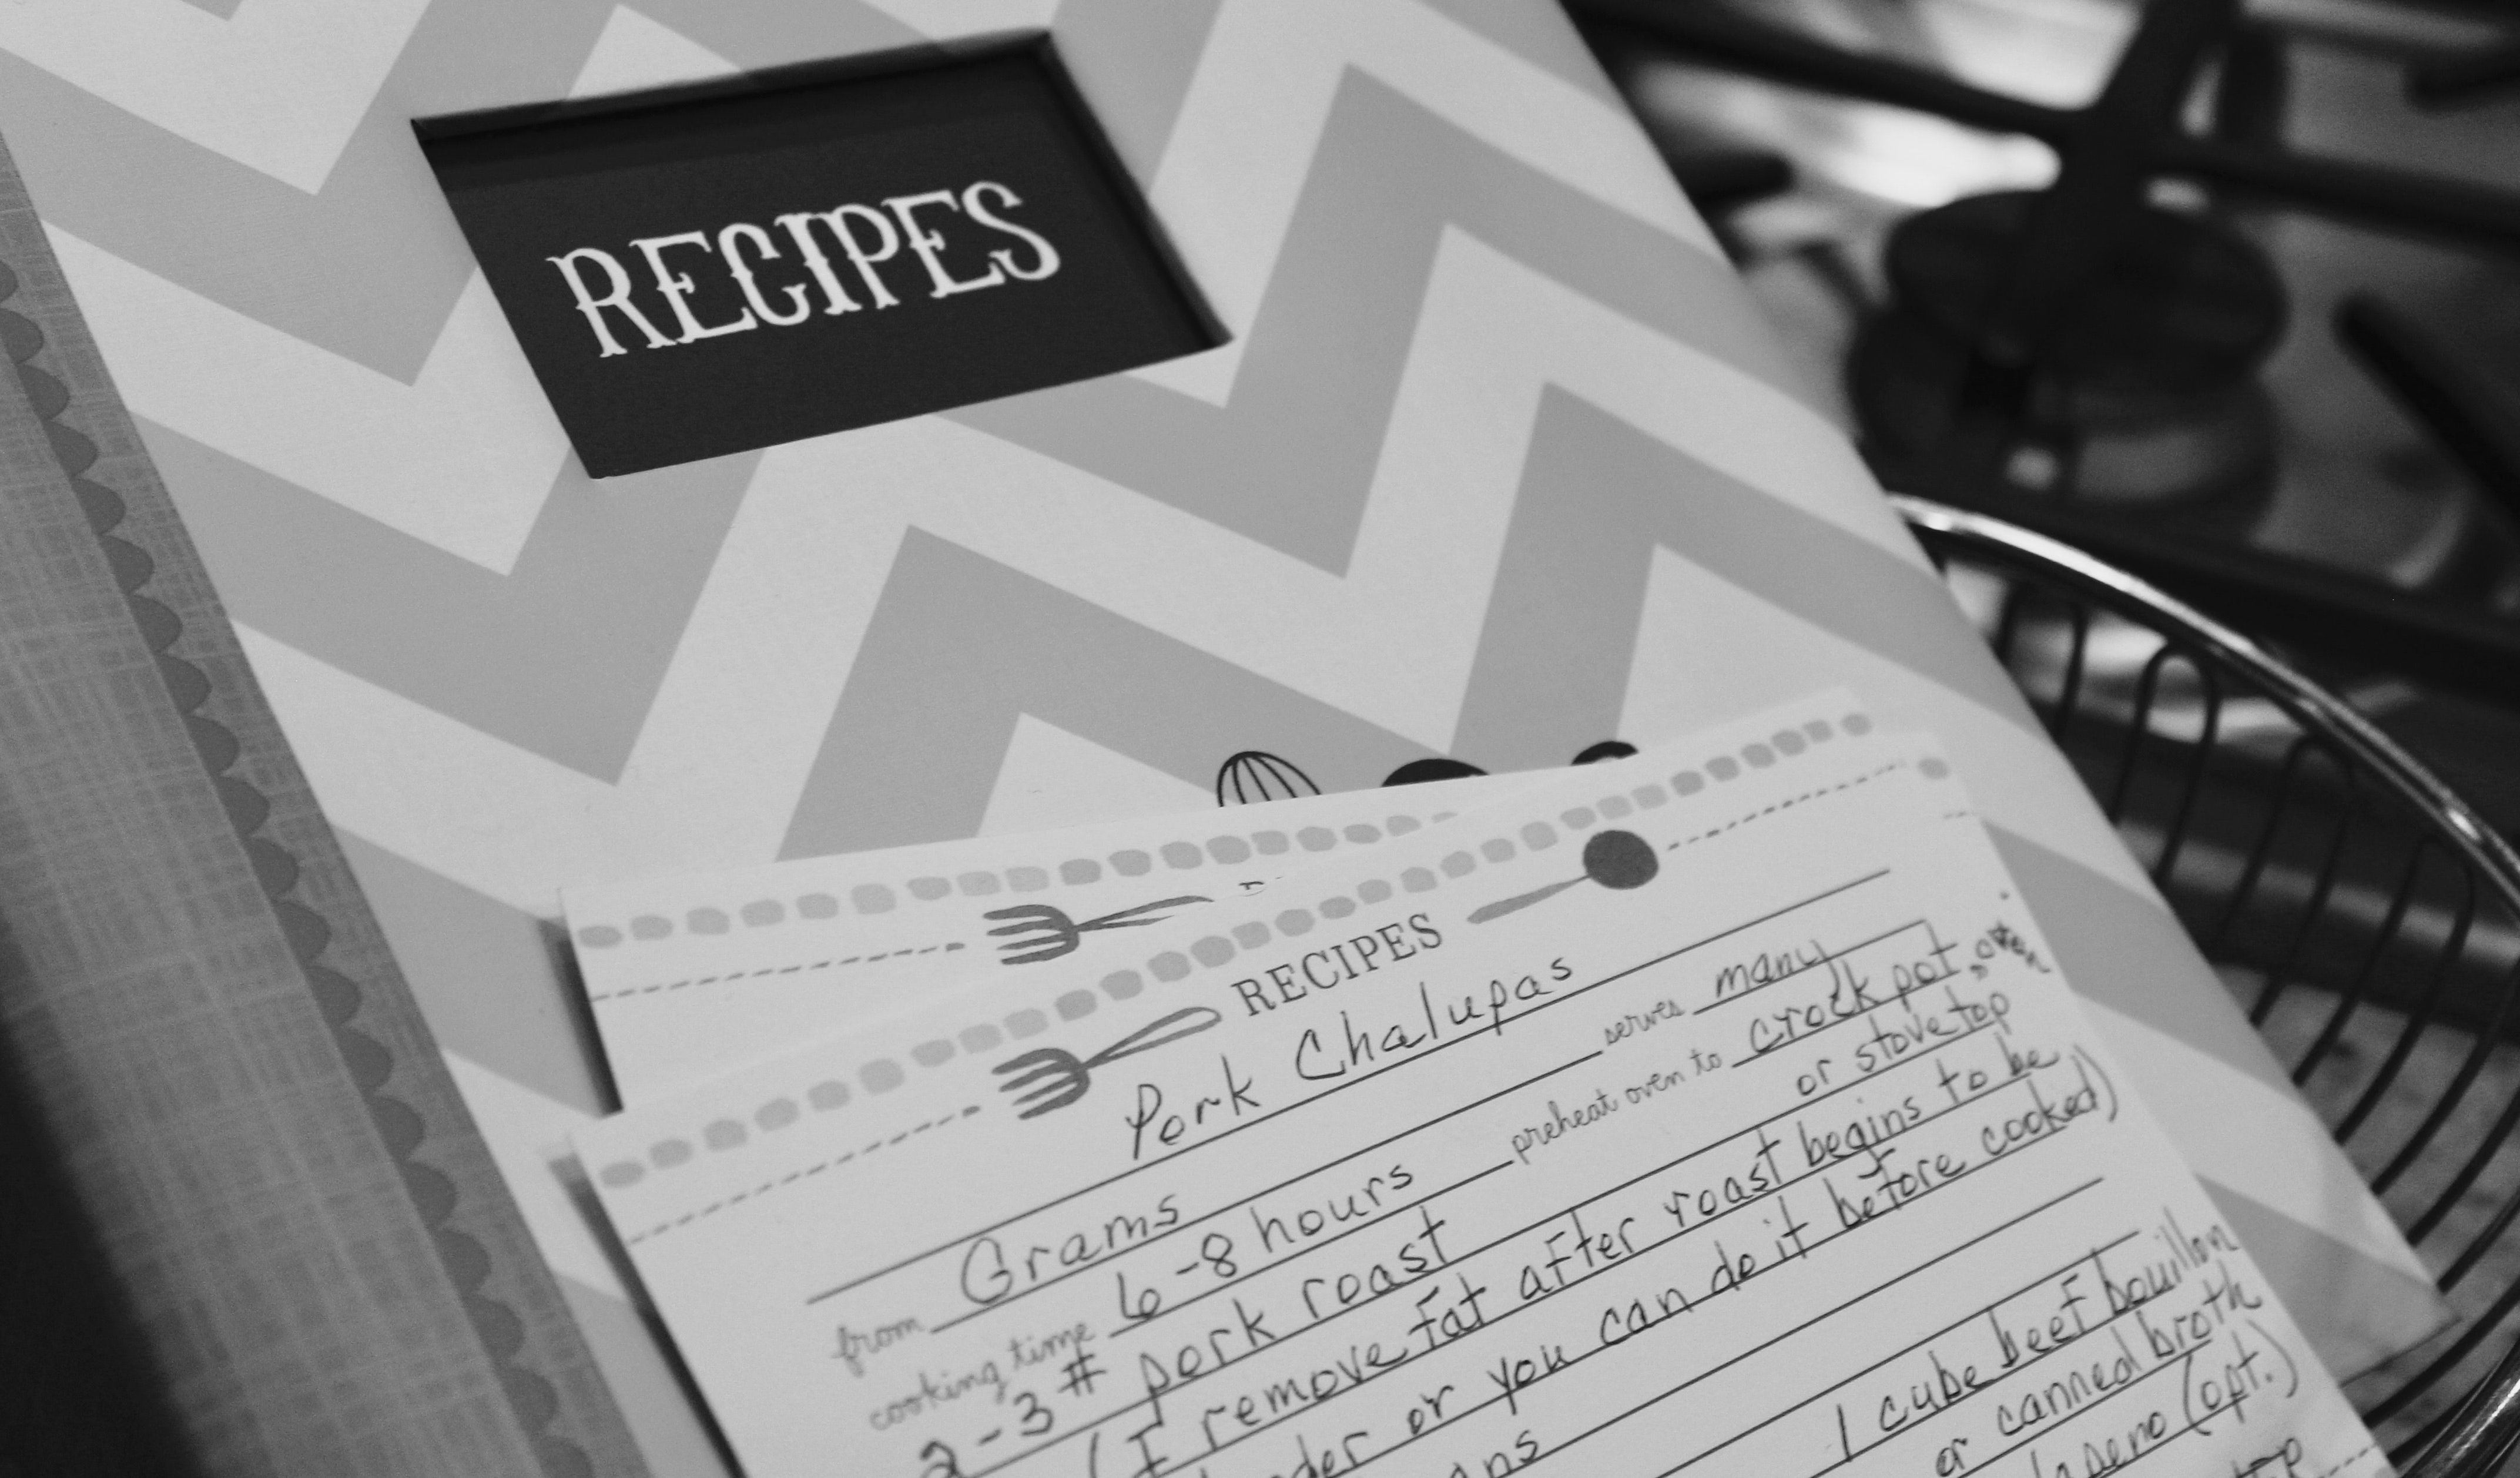 RECIPES
RECIPES
Pork Chalupas
from Grams serves many
cooking time 6-8 hours preheat oven to crock pot, oven
or stovetop
2-3# pork roast
(I remove fat after roast begins to be
or you can do it before cooked)
1 cube beef bouillon
or canned broth
(opt.)